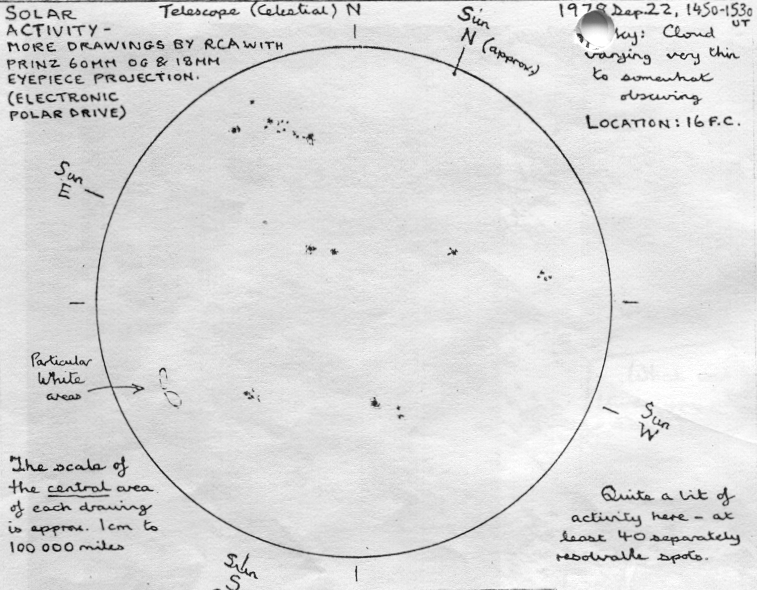 SOLAR
ACTIVITY -
MORE DRAWINGS BY RCA WITH
PRINZ 60MM OG & 18MM
EYEPIECE PROJECTION.
(ELECTRONIC
POLAR DRIVE)
Telescope (Celestial) N
Sun
N (approx.)
Sep. 22, 1450-1530
UT
Cloud
varying very thin
to somewhat
obscuring
LOCATION: 16 F.C.
Sun
E
Particular
White
areas
Sun
W
The scale of
the central area
of each drawing
is approx. 1cm to
100 000 miles
Quite a bit of
activity here - at
least 40 separately
resolvable spots.
Sun
S